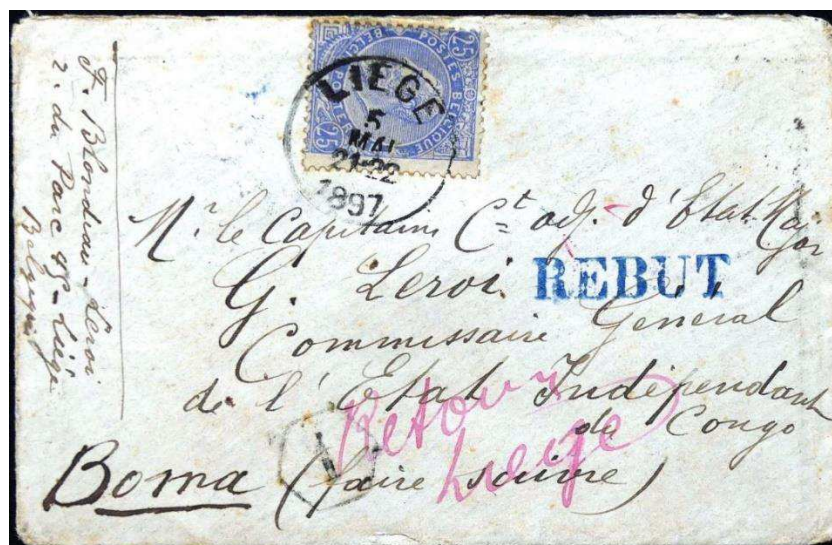 F. Blondiau-Leroi
r. du Parc 45-Liége
Belgique
25 POSTES BELGIQUE 25
LIEGE
5
MAI
21-22
1897
Mr le Capitaine Ct adj. d'Etat Major
G. Leroi
REBUT
Commissaire Général
de l'Etat Indépendant
du Congo
Retour
Liege
Boma (faire suivre)